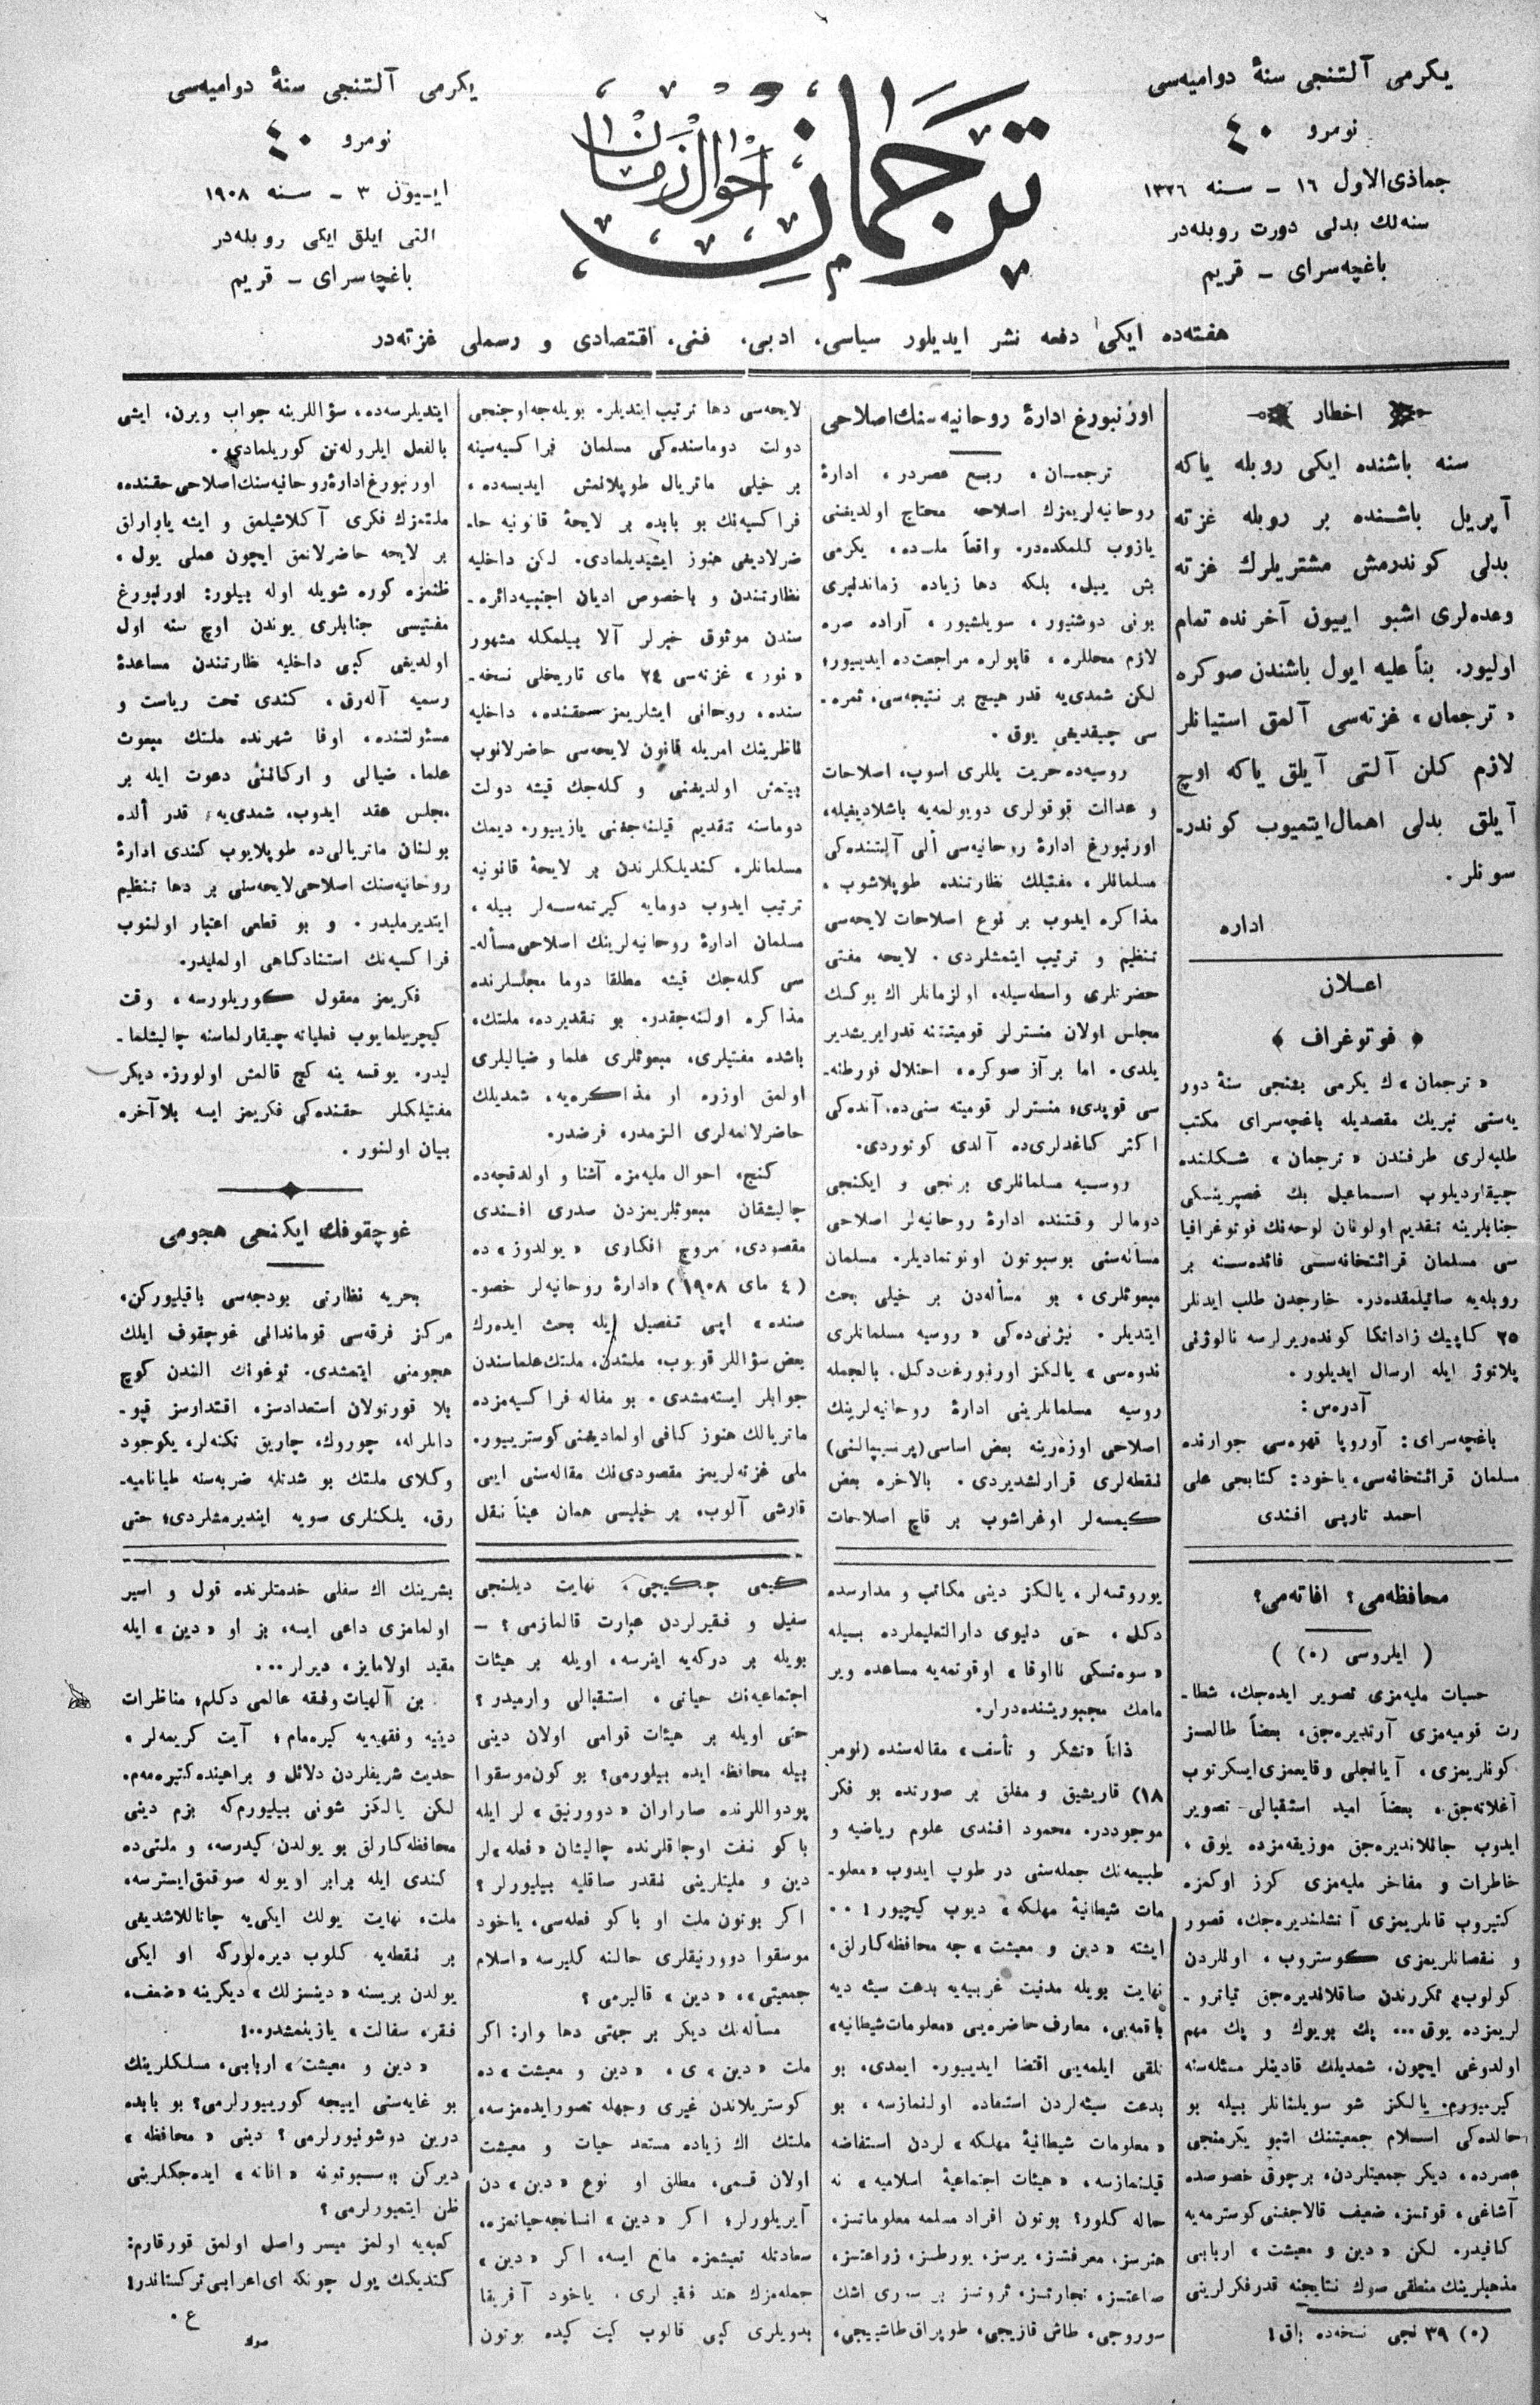 يكرمى آلتنجى سنۀ دواميه‌سى
نومرو ٤٠
جماذى‌الاول ١٦ ـ سنه ١٣٢٦
سنه‌لك بدلى دورت روبله‌در
باغچه‌سراى ـ قريم
ترجمان احوال زمان
يكرمى آلتنجى سنۀ دواميه‌سى
نومرو ٤٠
اييون ٣ ـ سنه ١٩٠٨
التى ايلق ايكى روبله‌در
باغچه‌سراى ـ قريم
هفته‌ده ايكى دفعه نشر ايديلور سياسى، ادبى، فنى، اقتصادى و رسملى غزته‌در
اخطار
سنه باشنده ايكى روبله ياكه
آپريل باشنده بر روبله غزته
بدلى كوندرمش مشتريلرك غزته
وعده‌لرى اشبو اييون آخرنده تمام
اوليور. بناً عليه ايول باشندن صوكره
«ترجمان» غزته‌سى آلمق استيانلر
لازم كلن آلتى آيلق ياكه اوچ
آيلق بدلى اهمال‌ايتميوب كوندر-
سونلر.
اداره
اعلان
﴿ فوتوغراف ﴾
«ترجمان»ك يكرمى بشنجى سنۀ دور
يه‌سنى تبريك مقصديله باغچه‌سراى مكتب
طلبه‌لرى طرفندن «ترجمان» شكلنده
چيقارديلوب اسماعيل بك غصپرينسكى
جنابلرينه تقديم اولونان لوحه‌نك فوتوغرافيا
سى مسلمان قرائتخانه‌سى فائده‌سنه بر
روبله‌يه صاتيلمقده‌در. خارجدن طلب ايدنلر
٢٥ كاپيك زاداتكا كونده‌ريرلرسه نالوژنى
پلاتوژ ايله ارسال ايديلور.
آدره‌س:
باغچه‌سراى: آوروپا قهوه‌سى جوارنده
مسلمان قرائتخانه‌سى، ياخود: كتابجى على
احمد تارپى افندى
اورنبورغ ادارۀ روحانيه‌سنك اصلاحى
ترجمان، ربع عصردر، ادارۀ
روحانيه‌لريمزك اصلاحه محتاج اولديغنى
يازوب كلمكده‌در. واقعاً ملت‌ده، يكرمى
بش ييل، بلكه دها زياده زماندنبرى
بونى دوشنيور، سويلشيور، آراده صره
لازم محللره، قاپولره مراجعت‌ده ايدييور؛
لكن شمدى‌يه قدر هيچ بر نتيجه‌سى، ثمره-
سى چيقديغى يوق.
روسيه‌ده حريت يللرى اسوب، اصلاحات
و عدالت قوقولرى دويولمه‌يه باشلاديغيله،
اورنبورغ ادارۀ روحانيه‌سى ألى آلتنده‌كى
مسلمانلر، مفتيلك نظارتنده طوپلاشوب،
مذاكره ايدوب بر نوع اصلاحات لايحه‌سى
تنظيم و ترتيب ايتمشلردى. لايحه مفتى
حضرتلرى واسطه‌سيله، اولزمانلر اك يوكسك
مجلس اولان منسترلر قوميتتنه قدر ايريشدير
يلدى. اما بر آز صوكره، اختلال فورطنه-
سى قوپدى؛ منسترلر قوميته سنى‌ده، آنده‌كى
اكثر كاغدلرى‌ده آلدى كوتوردى.
روسيه مسلمانلرى برنجى و ايكنجى
دومالر وقتنده ادارۀ روحانيه‌لر اصلاحى
مسأله‌سنى بوسبوتون اونوتماديلر. مسلمان
مبعوثلرى، بو مسأله‌دن بر خيلى بحث
ايتديلر. نيژنى‌ده‌كى «روسيه مسلمانلرى
ندوه‌سى» يالكز اورنبورغ‌ك دكل، بالجمله
روسيه مسلمانلرينى ادارۀ روحانيه‌لرينك
اصلاحى اوزه‌رينه بعض اساسى (پرنسيپيالنى)
نقطه‌لرى قرارلشديردى. بالاخره بعض
كيمسه‌لر اوغراشوب بر قاچ اصلاحات
لايحه‌سى دها ترتيب ايتديلر. بويله‌جه اوچنجى
دولت دوماسنده‌كى مسلمان فراكسيه‌سينه
بر خيلى ماتريال طوپلانمش ايديسه‌ده،
فراكسيه‌نك بو بابده بر لايحۀ قانونيه حا-
ضرلاديغى هنوز ايشيديلمادى. لكن داخليه
نظارتندن و باخصوص اديان اجنبيه دائره-
سندن موثوق خبرلر آلا بيلمكله مشهور
«نور» غزته‌سى ٢٤ ماى تاريخلى نسخه-
سنده، روحانى ايشلريمز حقنده، داخليه
ناظرينك امريله قانون لايحه‌سى حاضرلانوب
بيتمش اولديغنى و كله‌جك قيشه دولت
دوماسنه تقديم قيلنه‌جغنى يازييور. ديمك
مسلمانلر، كنديلكلرندن بر لايحۀ قانونيه
ترتيب ايدوب دومايه كيرتمه‌سه‌لر بيله،
مسلمان ادارۀ روحانيه‌لرينك اصلاحى مسأله-
سى كله‌جك قيشه مطلقا دوما مجلسلرنده
مذاكره اولنه‌جقدر. بو تقديرده، ملتك،
باشده مفتيلرى، مبعوثلرى علما و ضياليلرى
اولمق اوزره او مذاكره‌يه، شمديلك
حاضرلانمه‌لرى الزمدر، فرضدر.
كنج، احوال مليه‌مزه آشنا و اولدقچه‌ده
چاليشقان مبعوثلريمزدن صدرى افندى
مقصودى، مروج افكارى «يولدوز»ده
(٤ ماى ١٩٠٨) «ادارۀ روحانيه‌لر خصو-
صنده» اپى تفصيل ايله بحث ايده‌رك
بعض سؤاللر قويوب، ملتدن، ملتك علماسندن
جوابلر ايسته‌مشدى. بو مقاله فراكسيه‌مزده
ماتريالك هنوز كافى اولماديغنى كوستريييور.
ملى غزته‌لريمز مقصودى‌نك مقاله‌سنى ايى
قارشى آلوب، بر خيليسى همان عيناً نقل
ايتديلرسه‌ده، سؤاللرينه جواب ويرن، ايشى
بالفعل ايلرولەتن كوريلمادى.
اورنبورغ ادارۀ روحانيه‌سنك اصلاحى حقنده،
ملتمزك فكرى آكلاشيلمق و ايشه يارارلق
بر لايحه حاضرلانمق ايچون عملى يول،
ظنمزه كوره شويله اوله بيلور: اورنبورغ
مفتيسى جنابلرى بوندن اوچ سنه اول
اولديغى كبى داخليه نظارتندن مساعدۀ
رسميه آله‌رق، كندى تحت رياست و
مسئولتنده، اوفا شهرنده ملتك مبعوث
علما، ضيالى و اركاننى دعوت ايله بر
مجلس عقد ايدوب، شمدى‌يه قدر ألده
بولنان ماتريالى‌ده طوپلايوب كندى ادارۀ
روحانيه‌سنك اصلاحى لايحه‌سنى بر دها تنظيم
ايتديرمليدر. و بو قطعى اعتبار اولنوب
فراكسيه‌نك استنادكاهى اولمليدر.
فكريمز معقول كوريلورسه، وقت
كيچريلمايوب فعلياته چيقارلماسنه چاليشلما-
ليدر. يوقسه ينه كچ قالمش اولورز. ديكر
مفتيلكلر حقنده‌كى فكريمز ايسه بلاآخره
بيان اولنور.
غوچقوفك ايكنجى هجومى
بحريه نظارتى بودجه‌سى باقيليوركن،
مركز فرقه‌سى قوماندانى غوچقوف ايلك
هجومنى ايتمشدى. توغونك الندن كوچ
بلا قورتولان أستعدادسز، اقتدارسز قپو-
دانلرله، چوروك، چاريق تكنه‌لر، يكوجود
وكلاى ملتك بو شدتله ضربه‌سنه طياناميه-
رق، يلكنلرى سويه اينديرمشلردى؛ حتى
محافظه‌مى؟ افاته‌مى؟
(ايلروسى (٠))
حسيات مليه‌مزى تصوير ايده‌جك، شطا-
رت قوميه‌مزى آرتديره‌جق، بعضاً طالعسز
كونلريمزى، آيانچلى وقايعمزى ايسكرتوب
آغلاته‌جق، بعضاً اميد استقبالى تصوير
ايدوب جانلانديره‌جق موزيقه‌مزده يوق،
خاطرات و مفاخر مليه‌مزى كرز اوكمزه
كتيروب قانلريمزى آتشلنديره‌جك، قصور
و نقصانلريمزى كوستروب، اونلردن
كولوب، تكررندن صاقلانديره‌جق تياترو-
لريمزده يوق... پك بويوك و پك مهم
اولدوغى ايچون، شمديلك قادينلر مسئله‌سنه
كيرميورم. يالكز شو سويلنانلر بيله بو
حالده‌كى اسلام جمعيتنك اشبو يكرمنجى
عصرده، ديكر جمعيتلردن، برچوق خصوصده
آشاغى، قوتسز، ضعيف قالاجغنى كوسترمه‌يه
كافيدر. لكن «دين و معيشت» اربابى
مذهبلرينك منطقى صوك نتايجنه قدر فكرلرينى
(٠) ٣٩ نجى نسخه‌ده باق!
يوروتسه‌لر، يالكز دينى مكاتب و مدارسده
دكل، حتى دنيوى دارالتعليملرده بيله
«سوه‌تسكى ناؤقا» اوقوتمه‌يه مساعده وير
مامك مجبوريتنده‌درلر.
ذاتاً «تشكر و تأسف» مقاله‌سنده (نومر
١٨) قاريشيق و مغلق بر صورتده بو فكر
موجوددر. محمود افندى علوم رياضيه و
طبيعه‌نك جمله‌سنى در طوپ ايدوب «معلو-
مات شيطانيۀ مهلكه» ديوب كيچيور!..
ايشته «دين و معيشت»جه محافظه‌كارلق،
نهايت بويله مدنيت غربيه‌يه بدعت سيئه ديه
باقمه‌يى، معارف حاضره‌يى «معلومات شيطانيه»
تلقى ايلمه‌يى اقتضا ايدييور. ايمدى، بو
بدعت سيئه‌لردن استفاده اولنمازسه، بو
«معلومات شيطانيۀ مهلكه»لردن استفاضه
قيلنمازسه، «هيئات اجتماعيۀ اسلاميه» نه
حاله كلور؟ بوتون افراد مسلمه معلوماتسز،
هنرسز، معرفتسز، يرسز، يورطسز، زراعتسز،
صناعتسز، تجارتسز، ثروتسز بر سورى اشك
سوروجى، طاش قازيجى، طوپراق طاشيجى،
كيمى چكيجى، نهايت ديلنجى
سفيل و فقيرلردن عبارت قالمازمى؟ ـ
بويله بر دركه‌يه اينرسه، اويله بر هيئات
اجتماعيه‌نك حياتى، استقبالى وارميدر؟
حتى اويله بر هيئات قوامى اولان دينى
بيله محافظه ايده بيلورمى؟ بو كون موسقوا
پودواللرنده صاراران «دوورنيق»لر ايله
باكو نفت اوجاقلرنده چاليشان «فعله»لر
دين و مليتلرينى نقدر صاقليه بيليورلر؟
اكر بوتون ملت او باكو فعله‌سى، ياخود
موسقوا دوورنيقلرى حالنه كليرسه «اسلام
جمعيتى»، «دين» قاليرمى؟
مسأله‌نك ديكر بر جهتى دها وار: اكر
ملت «دين»ى، «دين و معيشت»ده
كوستريلاندن غيرى وجهله تصور ايده‌مزسه،
ملتك اك زياده مستعد حيات و معيشت
اولان قسمى، مطلق او نوع «دين»دن
آيريلورلر؛ اكر «دين» انسانجه حياتمزه،
سعادتله تعيشمزه مانع ايسه، اكر «دين»
جمله‌مزك هند فقيرلرى، ياخود آفريقا
بدويلرى كبى قالوب كيت كيده بوتون
بشرينك اك سفلى خدمتلرنده قول و اسير
اولمامزى داعى ايسه، بز او «دين» ايله
مقيد اولامايز، ديرلر...
بن آلهيات و فقه عالمى دكلم؛ مناظرات
دينيه و فقهيه‌يه كيره‌مام؛ آيت كريمه‌لر،
حديث شريفلردن دلائل و براهينده كتيره‌مه‌م.
لكن يالكز شونى بيليورم‌كه بزم دينى
محافظه‌كارلق بو يولدن كيدرسه، و ملتى‌ده
كندى ايله برابر او يوله صوقمق ايسترسه،
ملت، نهايت يولك ايكى‌يه چاتاللاشديغى
بر نقطه‌يه كلوب ديره‌لوركه او ايكى
يولدن بريسنه «دينسزلك» ديكرينه «ضعف،
فقر، سفالت» يازيلمشدر..!
«دين و معيشت» اربابى، مسلكلرينك
بو غايه‌سنى اييجه كوريييورلرمى؟ بو بابده
درين دوشونيورلرمى؟ دينى «محافظه»
ديركن بوسبوتونه «افاته» ايده‌جكلرينى
ظن ايتميورلرمى؟
كعبه‌يه اولمز ميسر واصل اولمق قورقارم:
كنديكك يول چونكه اى اعرابى تركستاندر!
ع.